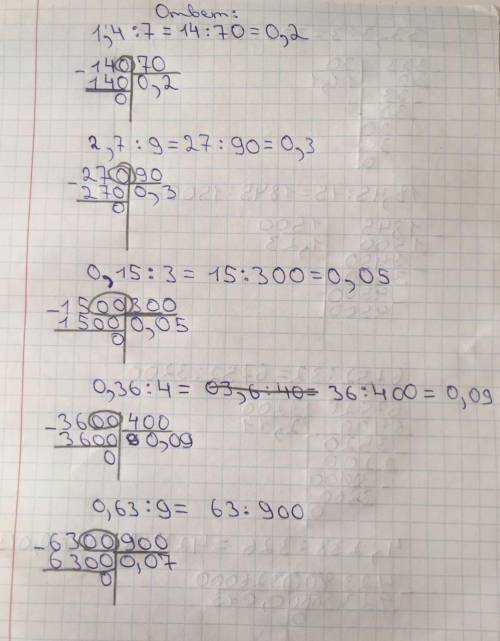 Ответ:
1,4 : 7 = 14 : 70 = 0,2
- 140 70
140 0,2
0
2,7 : 9 = 27 : 90 = 0,3
- 270 90
270 0,3
0
0,15 : 3 = 15 : 300 = 0,05
- 1500 300
1500 0,05
0
0,36 : 4 = 03,6 : 40 = 36 : 400 = 0,09
- 3600 400
3600 0,09
0
0,63 : 9 = 63 : 900
- 6300 900
6300 0,07
0